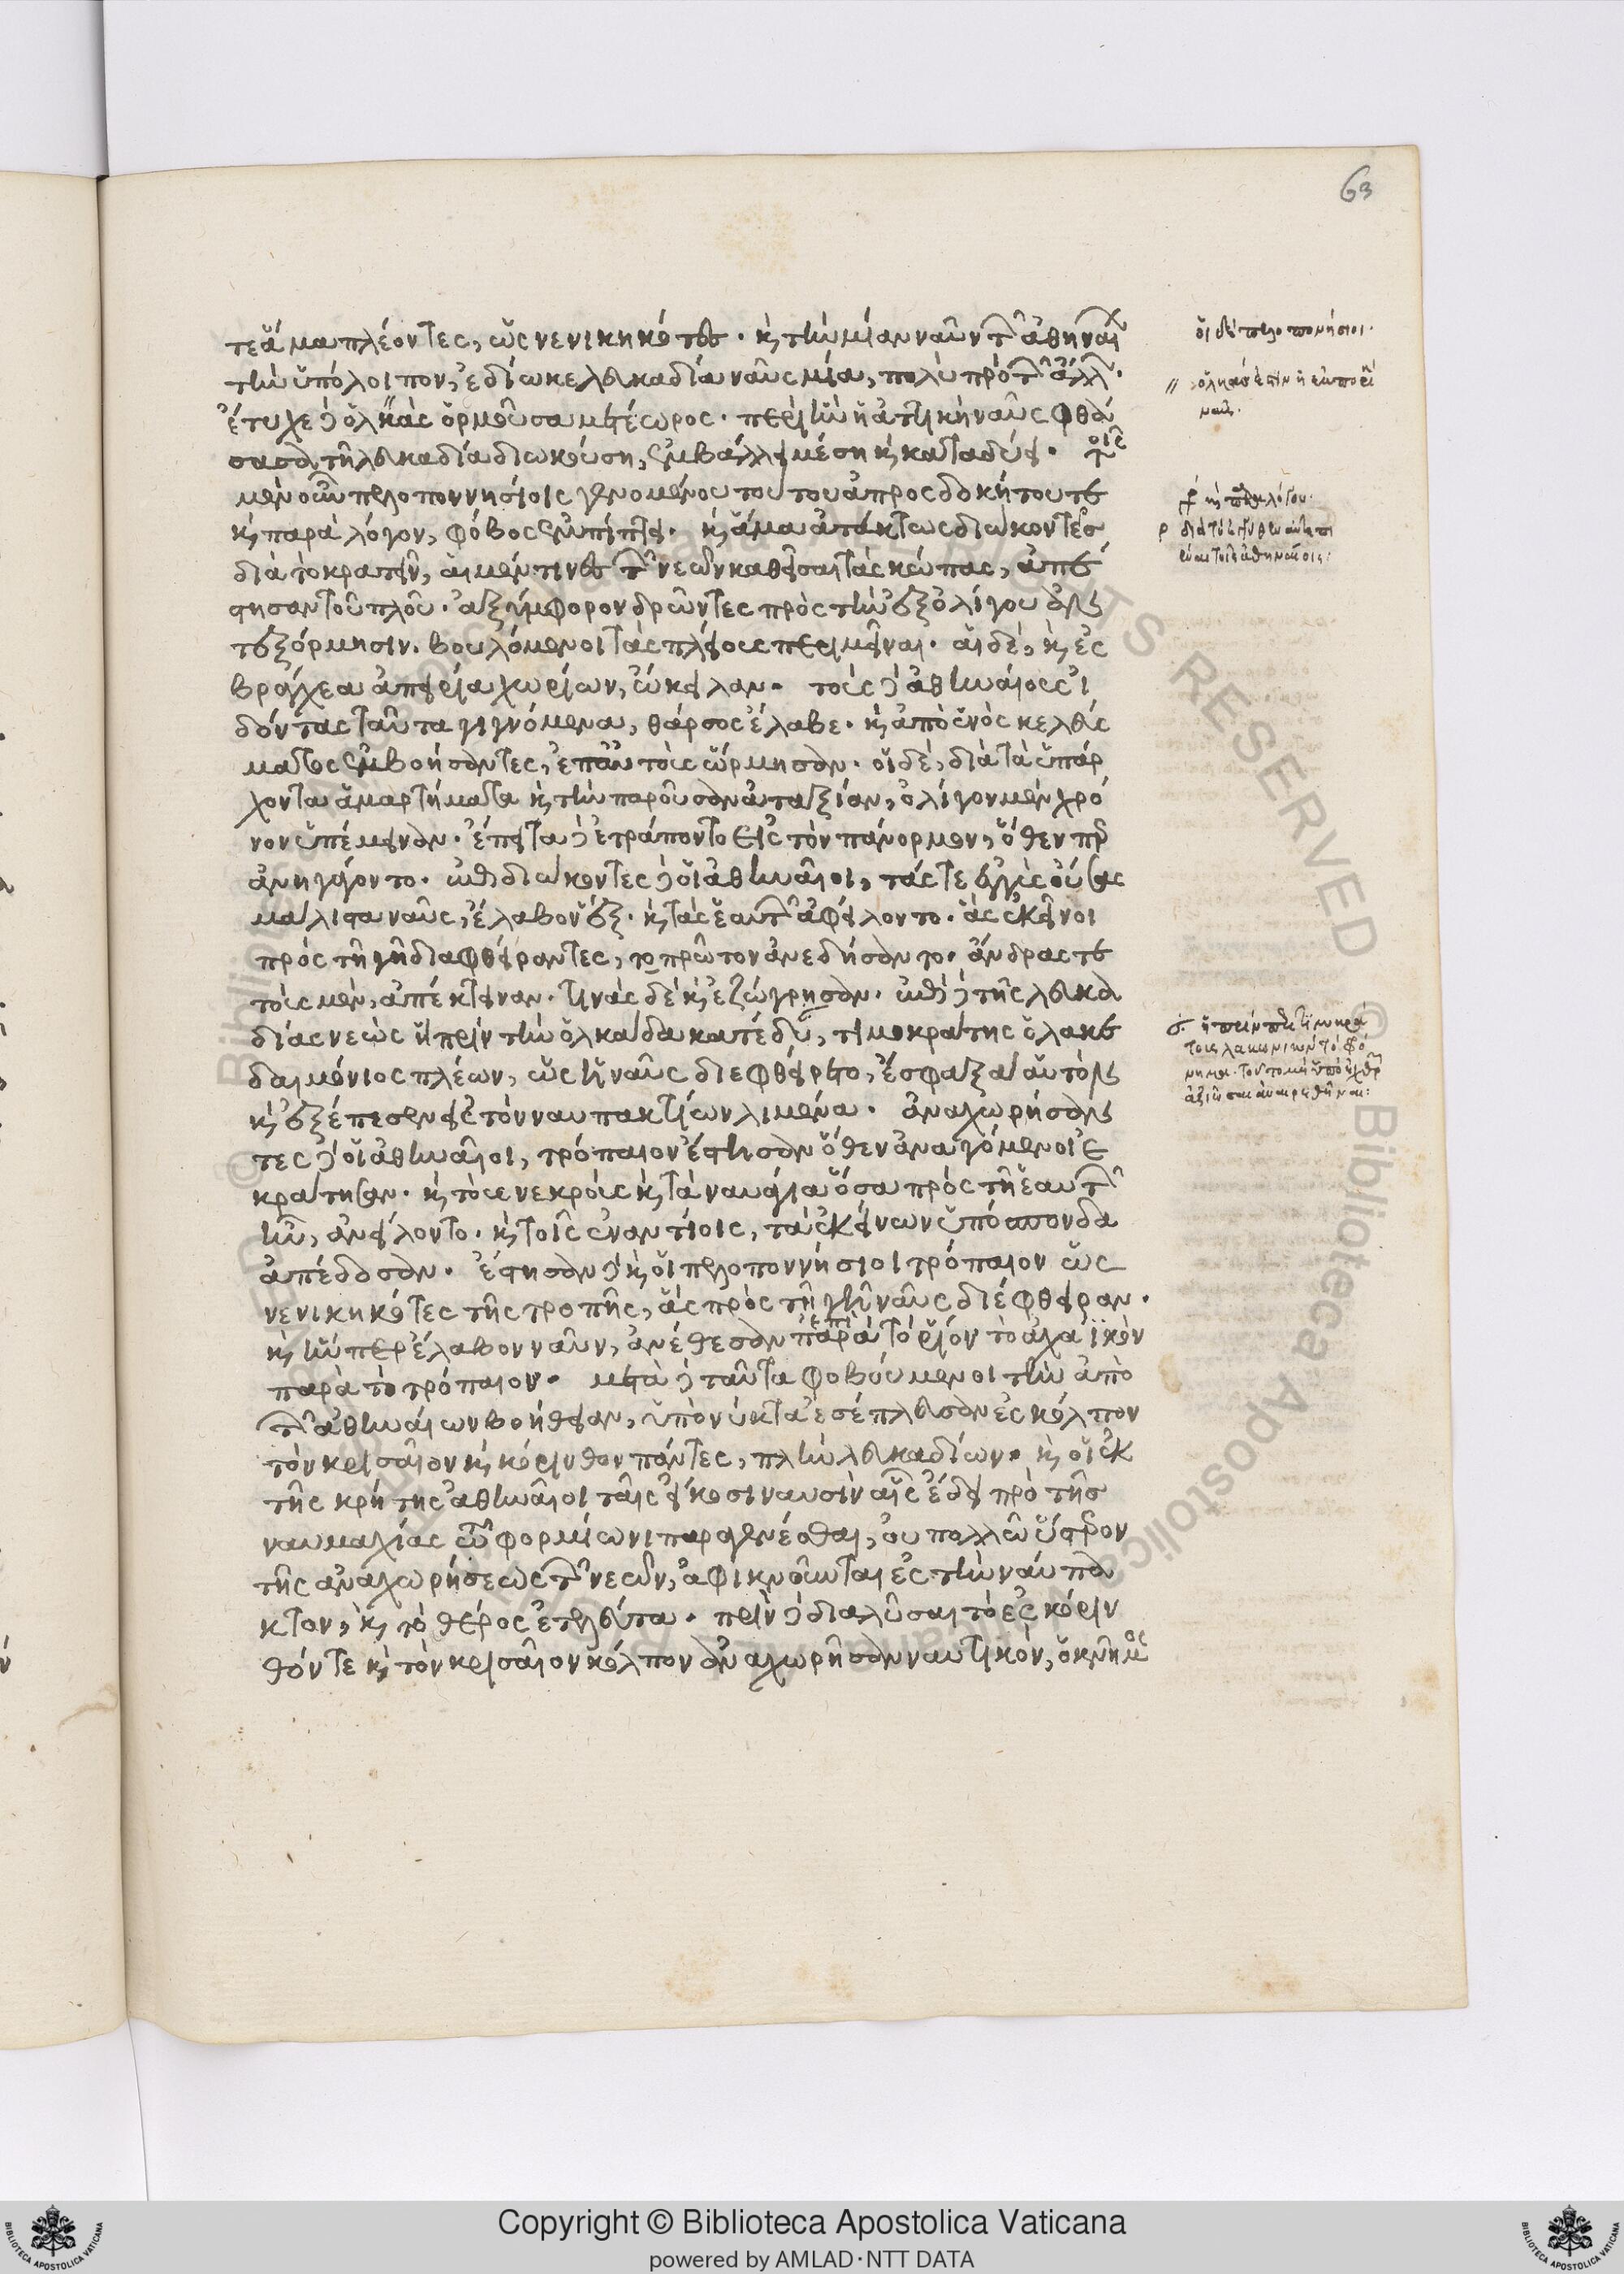 63
τε ἅμα πλέοντες, ὡς νενικηκότες· κ̀ τὴν μίαν ναῦν τῶν ἀθηναίων
τὴν ὑπόλοιπον, ἐδίωκε λευκαδία ναῦς μία, πολὺ πρὸ τῶν ἄλλων·
ἔτυχε δὲ ὁλκὰς ὁρμοῦσα μετέωρος· περὶ ἣν ἡ ἀττικὴ ναῦς φθά
σασα τῆ λευκαδία διωκούση, ἐμβάλλει μέση κ̀ καταδύει· τοῖς
μὲν οὖν πελοποννησίοις γενομένου τούτου ἀπροσδοκήτου τε
κ̀ παρὰ λόγον, φόβος ἐμπίπτει· κ̀ ἅμα ἀτάκτως διώκοντες
διὰ τὸ κρατεῖν, αἱ μέν τινες τῶν νεῶν καθεῖσαι τὰς κώπας, ἀπέ
στησαν τοῦ πλοῦ· ἀξύμφορον δρῶντες πρὸς τὴν ἐξ ὀλίγου ἀν
τεξόρμησιν· βουλόμενοι τὰς πλείους περιμεῖναι· αἱ δὲ, κ̀ ἐς
βράχεα ἀπειρία χωρίων, ὤκειλαν· τοὺς δὲ ἀθηναίους ἰ
δόντας ταῦτα γιγνόμενα, θάρσος ἔλαβε· κ̀ ἀπὸ ἑνὸς κελεύς
ματος ἐμβοήσαντες, ἐπ' αὐτοὺς ὥρμησαν· οἱ δὲ, διὰ τὰ ὑπάρ
χοντα ἁμαρτήματα κ̀ τὴν παροῦσαν ἀταξίαν, ὀλίγον μὲν χρό
νον ὑπέμειναν· ἔπειτα δὲ ἐτράποντο εἰς τὸν πάνορμον, ὅθεν περ
ἀνηγάγοντο· ἐπιδιώκοντες δὲ οἱ ἀθηναῖοι, τάς τε ἐγγὺς οὔσας
μάλιστα ναῦς, ἔλαβον ἕξ· κ̀ τὰς ἑαυτῶν ἀφείλοντο· ἃς ἐκεῖνοι
πρὸς τῆ γῆ διαφθείραντες, τὸ πρῶτον ἀνεδήσαντο· ἄνδρας τε
τοὺς μὲν, ἀπέκτειναν· τινὰς δὲ κ̀ ἐζώγρησαν· ἐπὶ δὲ τῆς λευκα
δίας νεὼς ἣ πρὶν τὴν ὁλκάδα κατέδυ, τιμοκράτης ὁ λακε
δαιμόνιος πλέων, ὡς ἡ ναῦς διεφθείρετο, ἔσφαξαἑαυτὸν
κ̀ ἐξέπεσεν ἐς τὸν ναυπακτίων λιμένα· ἀναχωρήσαν
τες δὲ οἱ ἀθηναῖοι, τρόπαιον ἔστησαν ὅθεν ἀναγόμενοι ἐ
κράτησαν· κ̀ τοὺς νεκροὺς κ̀ τὰ ναυάγια ὅσα πρὸς τῆ ἑαυτῶν
ἦν, ἀνείλοντο· κ̀ τοῖς ἐναντίοις, τὰ ἐκείνων ὑπόσπονδα
ἀπέδοσαν· ἔστησαν δὲ κ̀ οἱ πελοποννήσιοι τρόπαιον ὡς
νενικηκότες τῆς τροπῆς, ἃς πρὸς τῆ γῆ ναῦς διέφθειραν·
κ̀ ἥνπερ ἔλαβον ναῦν, ἀνέθεσαν παρὰ ἐπὶ τὸ ῥίον τὸ ἀχαϊκὸν
παρὰ τὸ τρόπαιον· μετὰ δὲ ταῦτα φοβούμενοι τὴν ἀπὸ
τῶν ἀθηναίων βοήθειαν, ὑπὸ νύκτα ἐσέπλευσαν ἐς κόλπον
τὸν κρισαῖον κ̀ κόρινθον πάντες, πλὴν λευκαδίων· κ̀ οἱ ἐκ
τῆς κρήτης ἀθηναῖοι ταῖς εἴκοσι ναυσὶν αἷς ἔδει πρὸ τῆς
ναυμαχίας τῶ φορμίωνι παραγενέσθαι, οὐ πολλῶ ὕστερον
τῆς ἀναχωρήσεως τῶν νεῶν, ἀφικνοῦνται ἐς τὴν ναύπα
κτον, κ̀ τὸ θέρος ἐτελεύτα· πρὶν δὲ διαλῦσαι τὸ ἐς κόριν
θόν τε κ̀ τὸν κρισαῖον κόλπον ἀναχωρῆσαν ναυτικὸν, ὁ κνῆμος
οἱ δὲ πελοποννήσιοι·
ναῦς·
κ̀ παραλόγου·
τοῖς ἀθηναίοις·
Copyright © Biblioteca Apostolica Vaticana
powered by AMLAD·NTT DATA